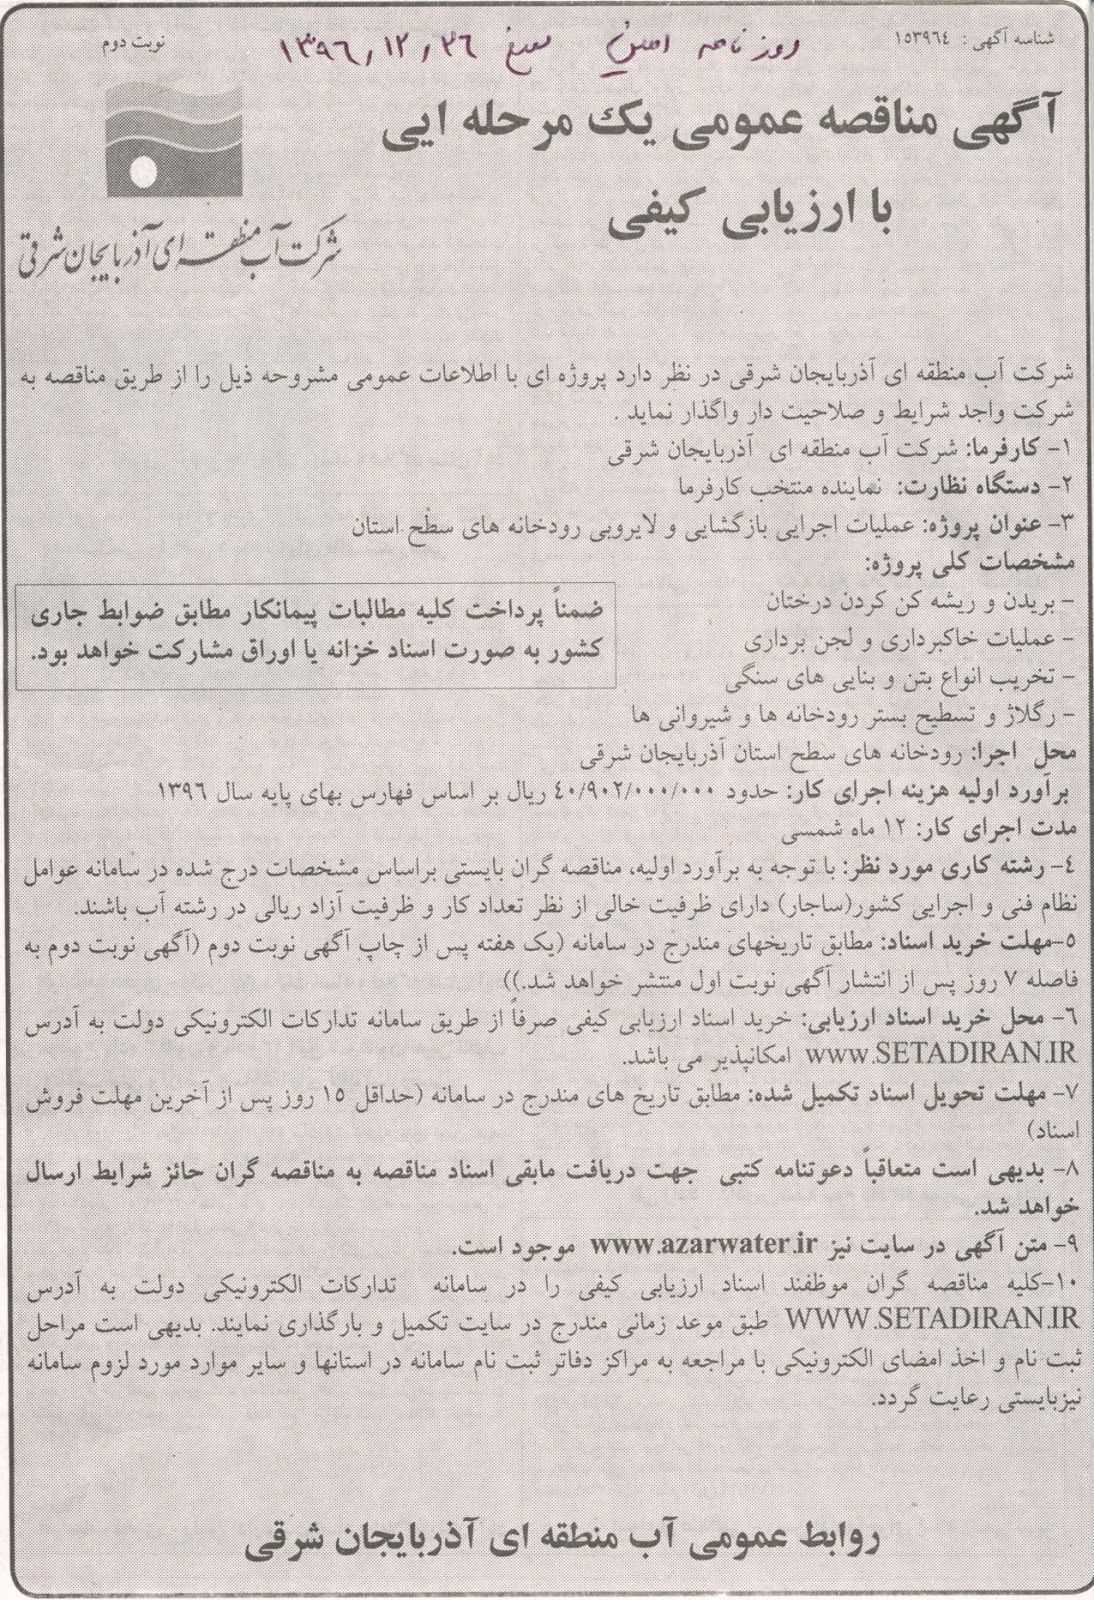 شناسه آگهی : ١٥٣٩٦٤
روزنامه امین مورخ ١٣٩٦,١٢,٢٦
نوبت دوم
آگهی مناقصه عمومی یک مرحله ایی
با ارزیابی کیفی
شرکت آب منطقه ای آذربایجان شرقی
شرکت آب منطقه ای آذربایجان شرقی در نظر دارد پروژه ای با اطلاعات عمومی مشروحه ذیل را از طریق مناقصه به
شرکت واجد شرایط و صلاحیت دار واگذار نماید .
١- کارفرما: شرکت آب منطقه ای آذربایجان شرقی
٢- دستگاه نظارت: نماینده منتخب کارفرما
٣- عنوان پروژه: عملیات اجرایی بازگشایی و لایروبی رودخانه های سطح استان
مشخصات کلی پروژه:
- بریدن و ریشه کن کردن درختان
- عملیات خاکبرداری و لجن برداری
- تخریب انواع بتن و بنایی های سنگی
- رگلاژ و تسطیح بستر رودخانه ها و شیروانی ها
ضمناً پرداخت کلیه مطالبات پیمانکار مطابق ضوابط جاری
کشور به صورت اسناد خزانه یا اوراق مشارکت خواهد بود.
محل اجرا: رودخانه های سطح استان آذربایجان شرقی
برآورد اولیه هزینه اجرای کار: حدود ٤٠/٩٠٢/٠٠٠/٠٠٠ ریال بر اساس فهارس بهای پایه سال ١٣٩٦
مدت اجرای کار: ١٢ ماه شمسی
٤- رشته کاری مورد نظر: با توجه به برآورد اولیه، مناقصه گران بایستی براساس مشخصات درج شده در سامانه عوامل
نظام فنی و اجرایی کشور(ساجار) دارای ظرفیت خالی از نظر تعداد کار و ظرفیت آزاد ریالی در رشته آب باشند.
٥-مهلت خرید اسناد: مطابق تاریخهای مندرج در سامانه (یک هفته پس از چاپ آگهی نوبت دوم (آگهی نوبت دوم به
فاصله ٧ روز پس از انتشار آگهی نوبت اول منتشر خواهد شد.))
٦- محل خرید اسناد ارزیابی: خرید اسناد ارزیابی کیفی صرفاً از طریق سامانه تدارکات الکترونیکی دولت به آدرس
www.SETADIRAN.IR امکانپذیر می باشد.
٧- مهلت تحویل اسناد تکمیل شده: مطابق تاریخ های مندرج در سامانه (حداقل ١٥ روز پس از آخرین مهلت فروش
اسناد)
٨- بدیهی است متعاقباً دعوتنامه کتبی جهت دریافت مابقی اسناد مناقصه به مناقصه گران حائز شرایط ارسال
خواهد شد.
٩- متن آگهی در سایت نیز www.azarwater.ir موجود است.
١٠-کلیه مناقصه گران موظفند اسناد ارزیابی کیفی را در سامانه تدارکات الکترونیکی دولت به آدرس
WWW.SETADIRAN.IR طبق موعد زمانی مندرج در سایت تکمیل و بارگذاری نمایند. بدیهی است مراحل
ثبت نام و اخذ امضای الکترونیکی با مراجعه به مراکز دفاتر ثبت نام سامانه در استانها و سایر موارد مورد لزوم سامانه
نیزبایستی رعایت گردد.
روابط عمومی آب منطقه ای آذربایجان شرقی